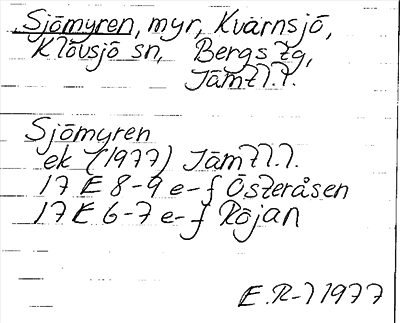 Sjömyren, myr, Kvarnsjö,
Klövsjö sn, Bergs tg,
Jämtl.l.
Sjömyren
ek (1977) Jämtl.l.
17 E 8-9 e-f Österåsen
17 E 6-7 e-f Röjan
E.R-l 1977